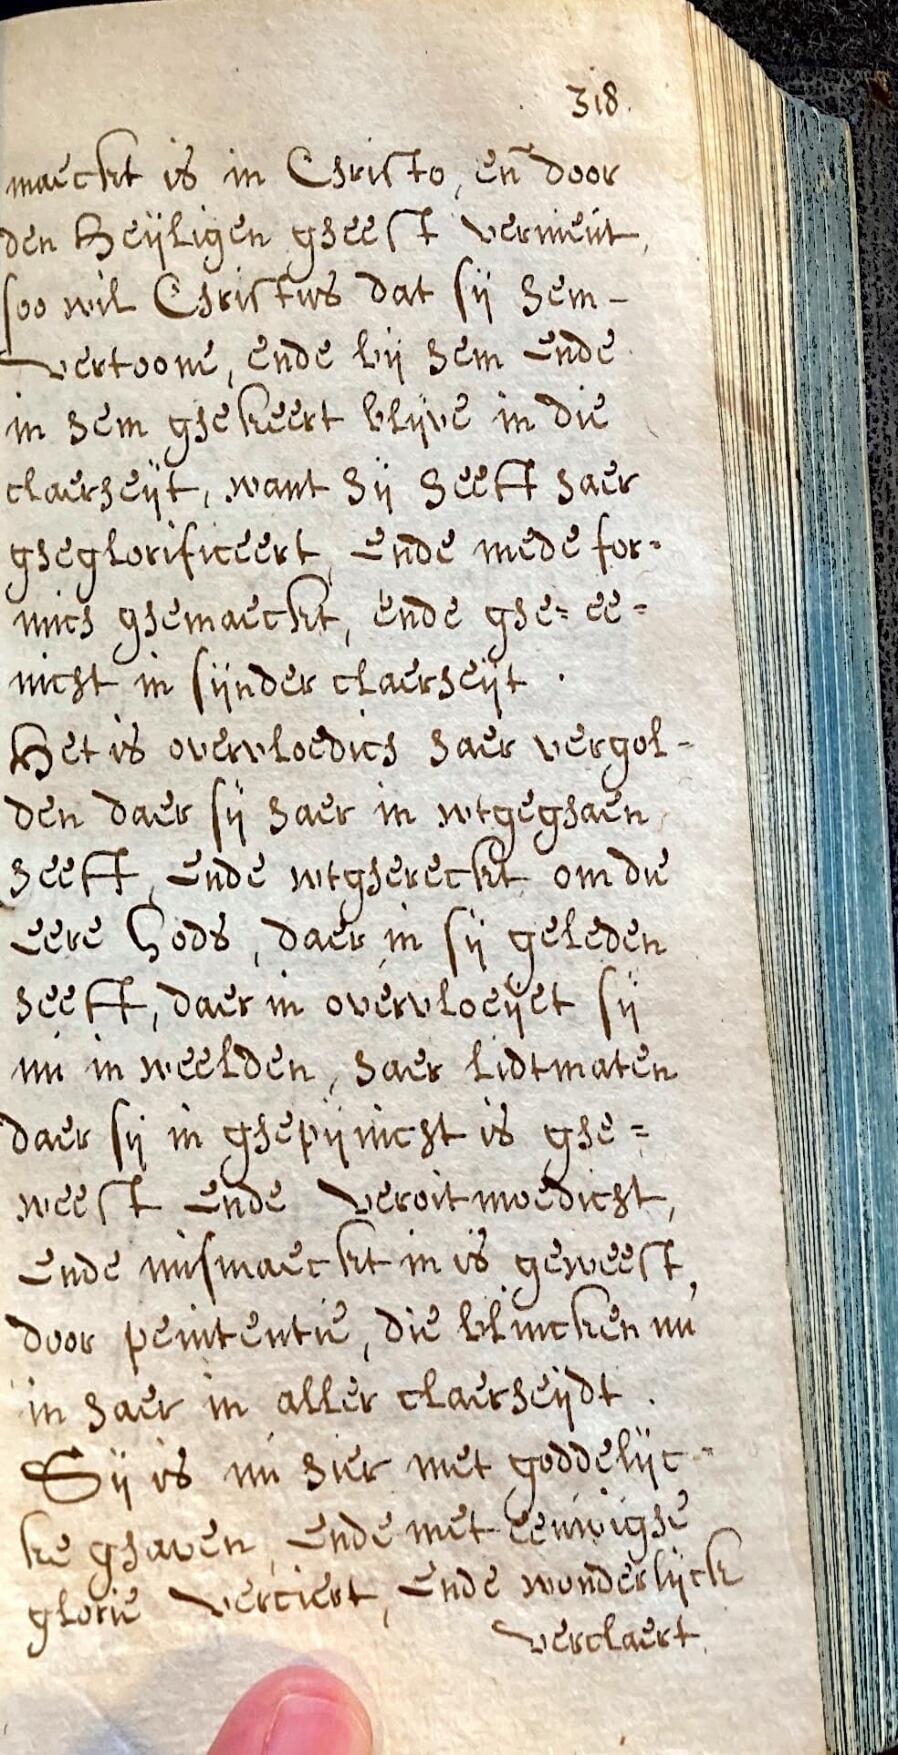 318.
maeckt is in Christo, en̄ door
den Heÿligen gheest vernieut,
soo wil Christus dat sÿ hem-
vertoone, ende bÿ hem ende
in hem ghekeert blÿve in die
claerheÿt, want hÿ heeft haer
gheglorificeert, ende mede for=
mich ghemaeckt, ende ghe=ee=
nicht in sÿnder claerheÿt.
Het is overvloedich haer vergol-
den daer sÿ haer in wtgeghaen
heeft, ende wtghereckt om die
eere Gods, daer in sÿ geleden
heeft, daer in overvloeÿet sÿ
nu in weelden, haer lidtmaten
daer sÿ in ghepÿnicht is ghe=
weest ende veroitmoedicht,
ende mismaeckt in is geweest,
door penitentie, die blincken nu
in haer in aller claerheÿdt.
Sÿ is nu hier met goddelÿc-
ke ghaven, ende met eeuwighe
glorie verciert, ende wonderlÿck
verclaert.